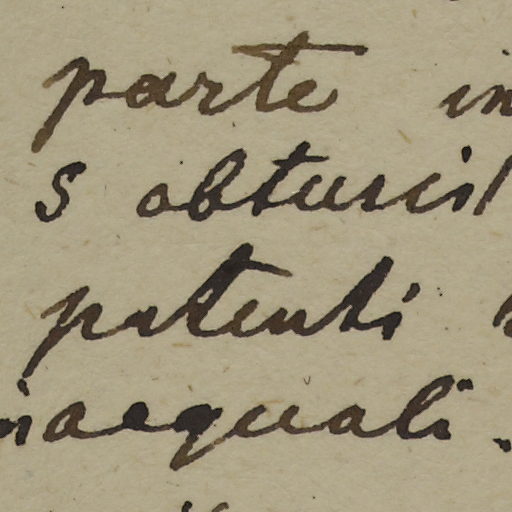 parte in
s obtusis
patenti
inaequali.